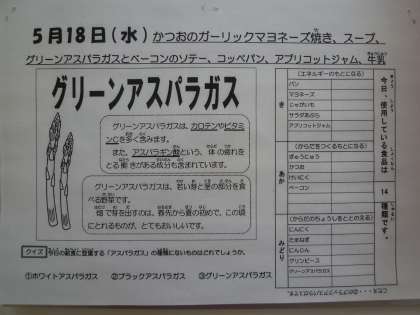 5月18日(水) かつおのガーリックマヨネーズ焼き、スープ、
グリーンアスパラガスとベーコンのソテー、コッペパン、アプリコットジャム、牛乳
グリーンアスパラガス
グリーンアスパラガスは、カロテンやビタミ
ンCを多く含みます。
また、アスパラギン酸という、体の疲れを
とる働きがある成分も含まれています。
グリーンアスパラガスは、若い芽と茎の部分を食
べる野菜です。
畑で芽を出すのは、春先から夏の初めで、この頃
にとれるものが、とてもおいしいです。
クイズ 今日の給食に登場する「アスパラガス」の種類にないものはどれでしょうか。
①ホワイトアスパラガス ②ブラックアスパラガス ③グリーンアスパラガス
今日、使用している食品は
14
種類です。
き
(エネルギーのもとになる)
パン
マヨネーズ
じゃがいも
サラダあぶら
アプリコットジャム
あか
(からだをつくるもとになる)
ぎゅうにゅう
かつお
とりにく
ベーコン
みどり
(からだのちょうしをととのえる)
にんにく
たまねぎ
にんじん
グリンピース
グリーンアスパラガス